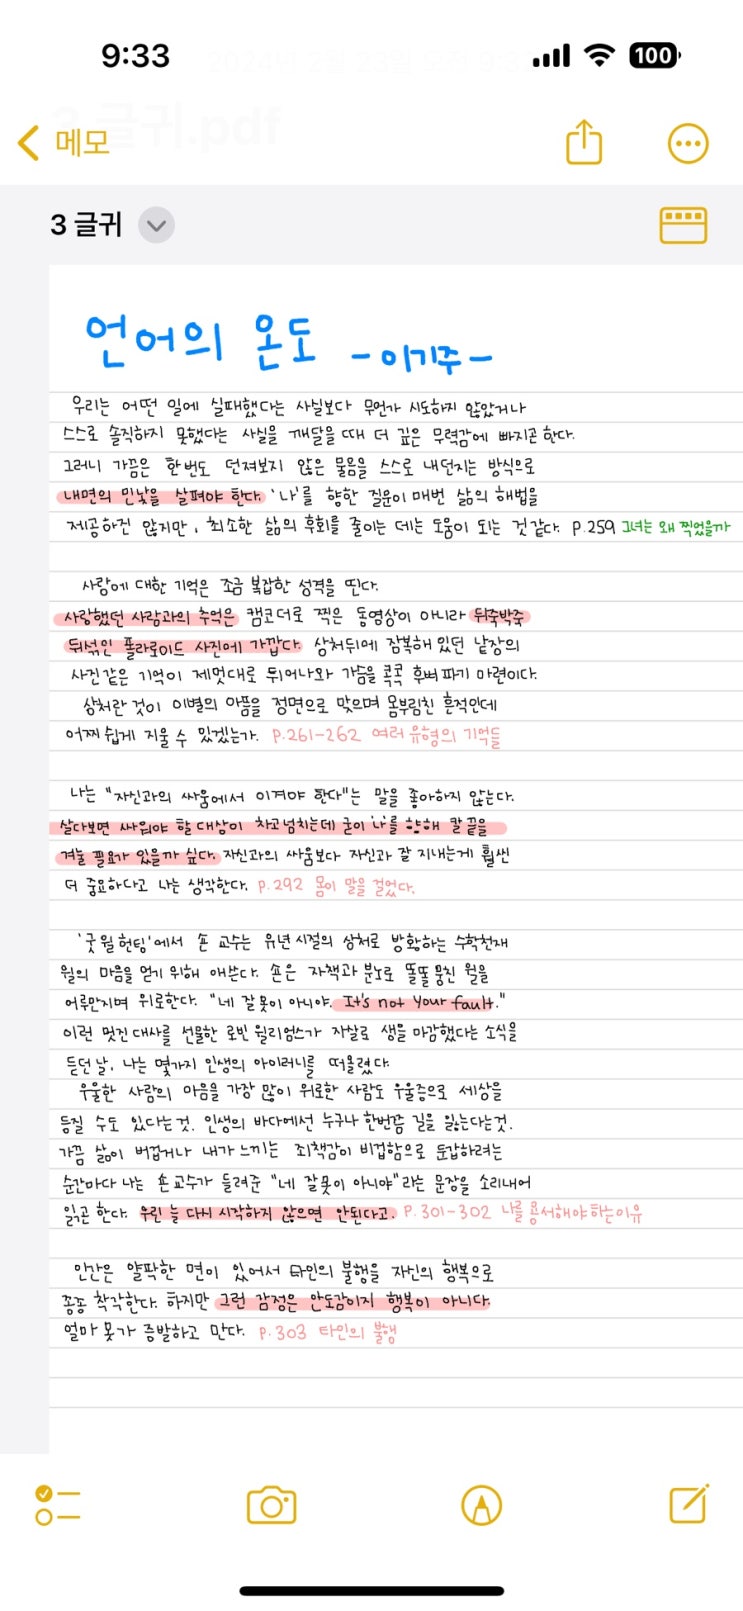 9:33
100
메모
3 글귀.pdf
3 글귀
언어의 온도 -이기주-
우리는 어떤 일에 실패했다는 사실보다 무언가 시도하지 않았거나
스스로 솔직하지 못했다는 사실을 깨달을 때 더 깊은 무력감에 빠지곤 한다.
그러니 가끔은 한번도 던져보지 않은 물음을 스스로 내던지는 방식으로
내면의 민낯을 살펴야 한다. '나'를 향한 질문이 매번 삶의 해법을
제공하진 않지만, 최소한 삶의 후회를 줄이는 데는 도움이 되는 것 같다. P.259 그녀는 왜 찍었을까
사랑에 대한 기억은 조금 복잡한 성격을 띤다.
사랑했던 사람과의 추억은 캠코더로 찍은 동영상이 아니라 뒤죽박죽
뒤섞인 폴라로이드 사진에 가깝다. 상처뒤에 잠복해 있던 낱장의
사진같은 기억이 제멋대로 튀어나와 가슴을 콕콕 후벼 파기 마련이다.
상처란 것이 이별의 아픔을 정면으로 맞으며 몸부림친 흔적인데
어찌 쉽게 지울 수 있겠는가. P.261-262 여러 유형의 기억들
나는 "자신과의 싸움에서 이겨야 한다"는 말을 좋아하지 않는다.
살다보면 싸워야 할 대상이 차고 넘치는데 굳이 '나'를 향해 칼 끝을
겨눌 필요가 있을까 싶다. 자신과의 싸움보다 자신과 잘 지내는게 훨씬
더 중요하다고 나는 생각한다. P.292 몸이 말을 걸었다.
'굿 윌 헌팅'에서 숀 교수는 유년 시절의 상처로 방황하는 수학천재
윌의 마음을 얻기 위해 애쓴다. 숀은 자책과 분노로 똘똘 뭉친 윌을
어루만지며 위로한다. "네 잘못이 아니야. It's not your fault."
이런 멋진 대사를 선물한 로빈 윌리엄스가 자살로 생을 마감했다는 소식을
듣던 날, 나는 몇가지 인생의 아이러니를 떠올렸다.
우울한 사람의 마음을 가장 많이 위로한 사람도 우울증으로 세상을
등질 수도 있다는 것. 인생의 바다에선 누구나 한번쯤 길을 잃는다는것.
가끔 삶이 버겁거나 내가 느끼는 죄책감이 비겁함으로 둔갑하려는
순간마다 나는 숀 교수가 들려준 "네 잘못이 아니야"라는 문장을 소리내어
읽곤 한다. 우린 늘 다시 시작하지 않으면 안된다고. P.301-302 나를 용서해야 하는 이유
인간은 얄팍한 면이 있어서 타인의 불행을 자신의 행복으로
종종 착각한다. 하지만 그런 감정은 안도감이지 행복이 아니다.
얼마 못가 증발하고 만다. P.303 타인의 불행